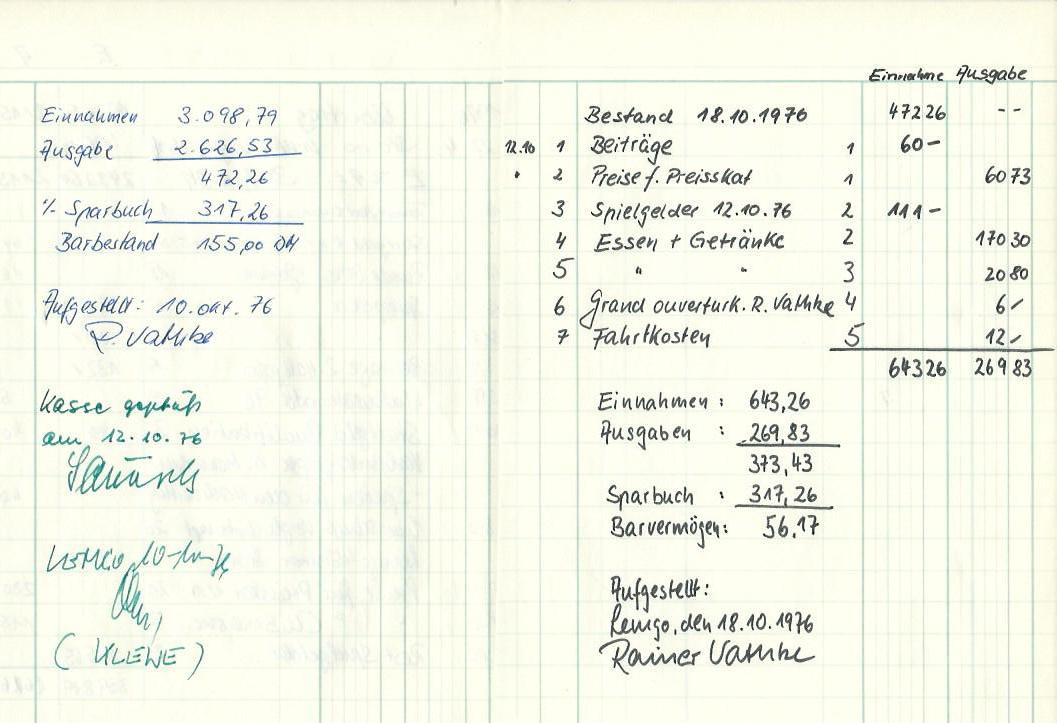 Einnahmen 3.098,79
Ausgabe 2.626,53
472,26
% Sparbuch 317,26
Barbestand 155,00 DM
Aufgestellt: 10. Okt. 76
R. Vathke
Kasse geprüft
am 12.10.76
Lemgo, 10-10-76
(KLEWE)
Einnahme Ausgabe
Bestand 18.10.1976 47226 --
12.10 1 Beiträge 1 60-
" 2 Preise f. Preisskat 1 6073
3 Spielgelder 12.10.76 2 111-
4 Essen + Getränke 2 17030
5 " " 3 2080
6 Grand ouvert urk. R. Vathke 4 6-
7 Fahrtkosten 5 12-
64326 26983
Einnahmen: 643,26
Ausgaben: 269,83
373,43
Sparbuch: 317,26
Barvermögen: 56,17
Aufgestellt:
Lemgo, den 18.10.1976
Rainer Vathke